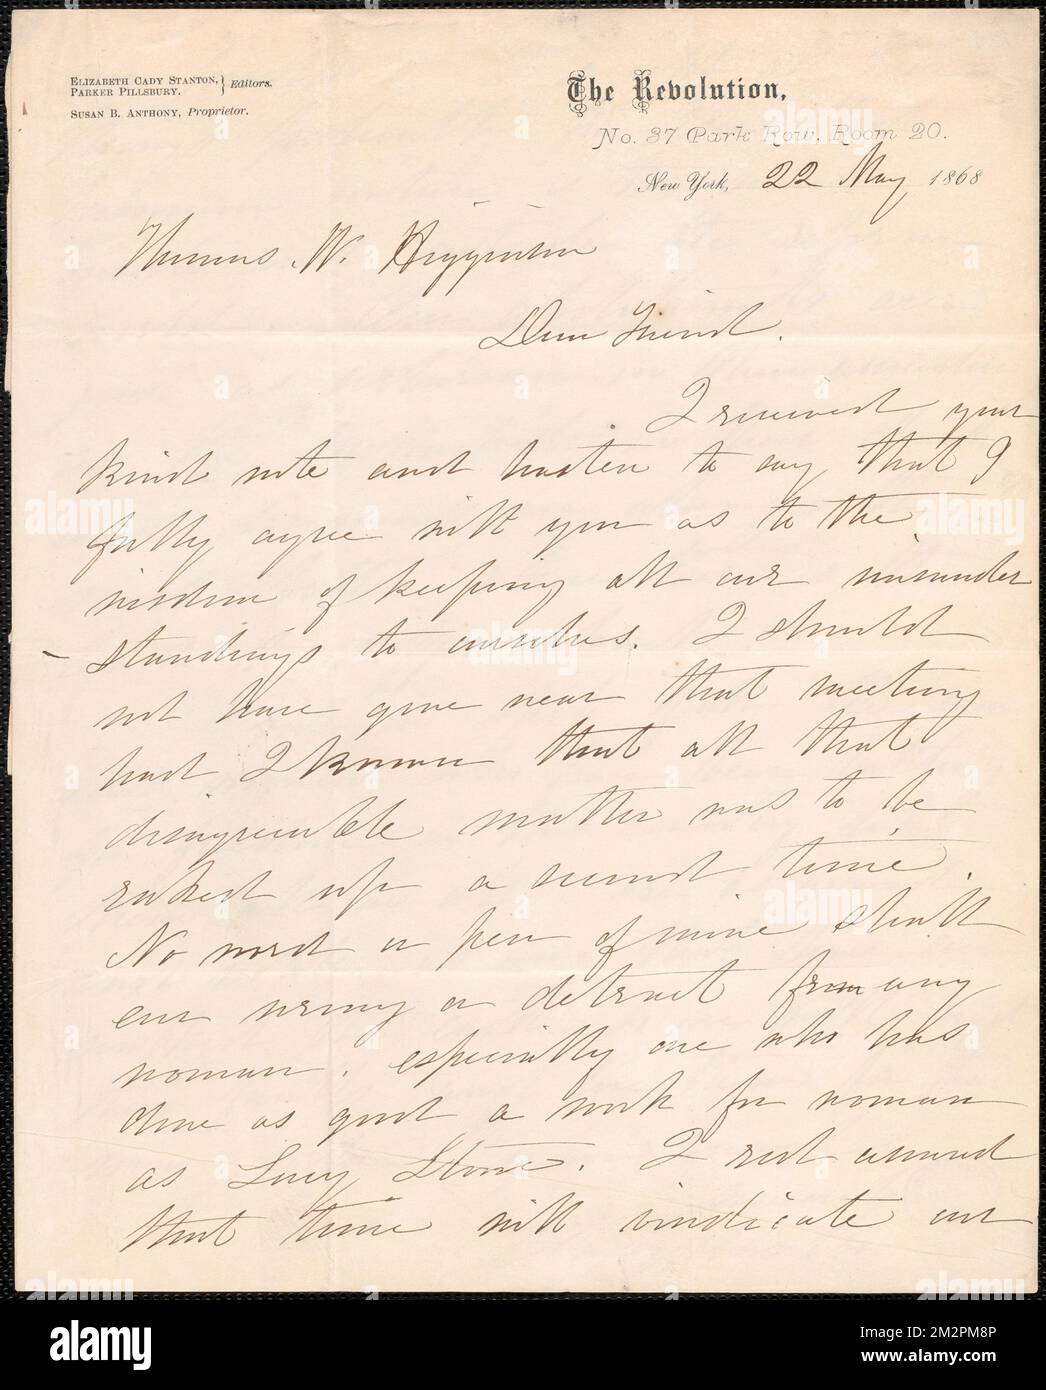 ELIZABETH CADY STANTON, } Editors.
PARKER PILLSBURY.
SUSAN B. ANTHONY, Proprietor.
The Revolution,
No. 37 Park Row, Room 20.
New York, 22 May 1868
Thomas W. Higginson
Dear Friend.
I received your
kind note and hasten to say that I
fully agree with you as to the
wisdom of keeping all our misunder
standings to ourselves. I should
not have gone near that meeting
had I known that all that
disagreeable matter was to be
raked up a second time.
No word or pen of mine shall
ever wrong or detract from any
woman, especially one who has
done as good a work for woman
as Lucy Stone. I rest assured
that time will vindicate our
alamy
alamy
Image ID: 2M2PM8P
www.alamy.com